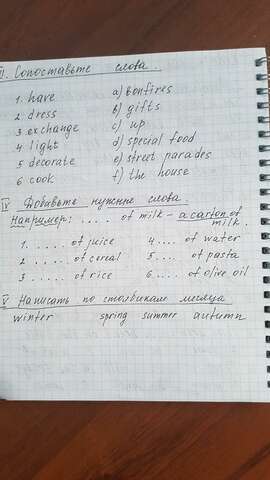 II. Сопоставьте слова.
1. have a) bonfires
2. dress b) gifts
3 exchange c) up
4 light d) special food
5 decorate e) street parades
6. cook f) the house
IV Добавьте нужные слова.
Например: .... of milk – a carton of
milk.
1. ..... of juice 4.... of water
2. ..... of cereal 5.... of pasta
3 ..... of rice 6.... of olive oil
V Написать по столбикам месяца
winter spring summer autumn